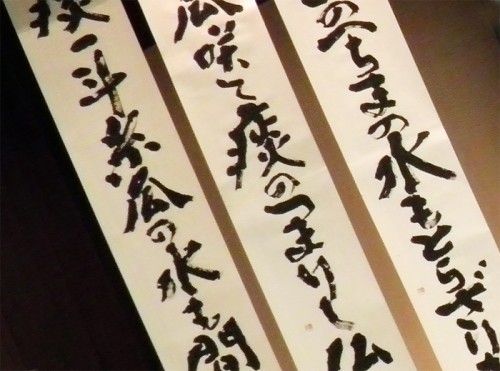 のへちまの水もとらざりき
瓜咲て痰のつまりし仏
痰一斗糸瓜の水も間